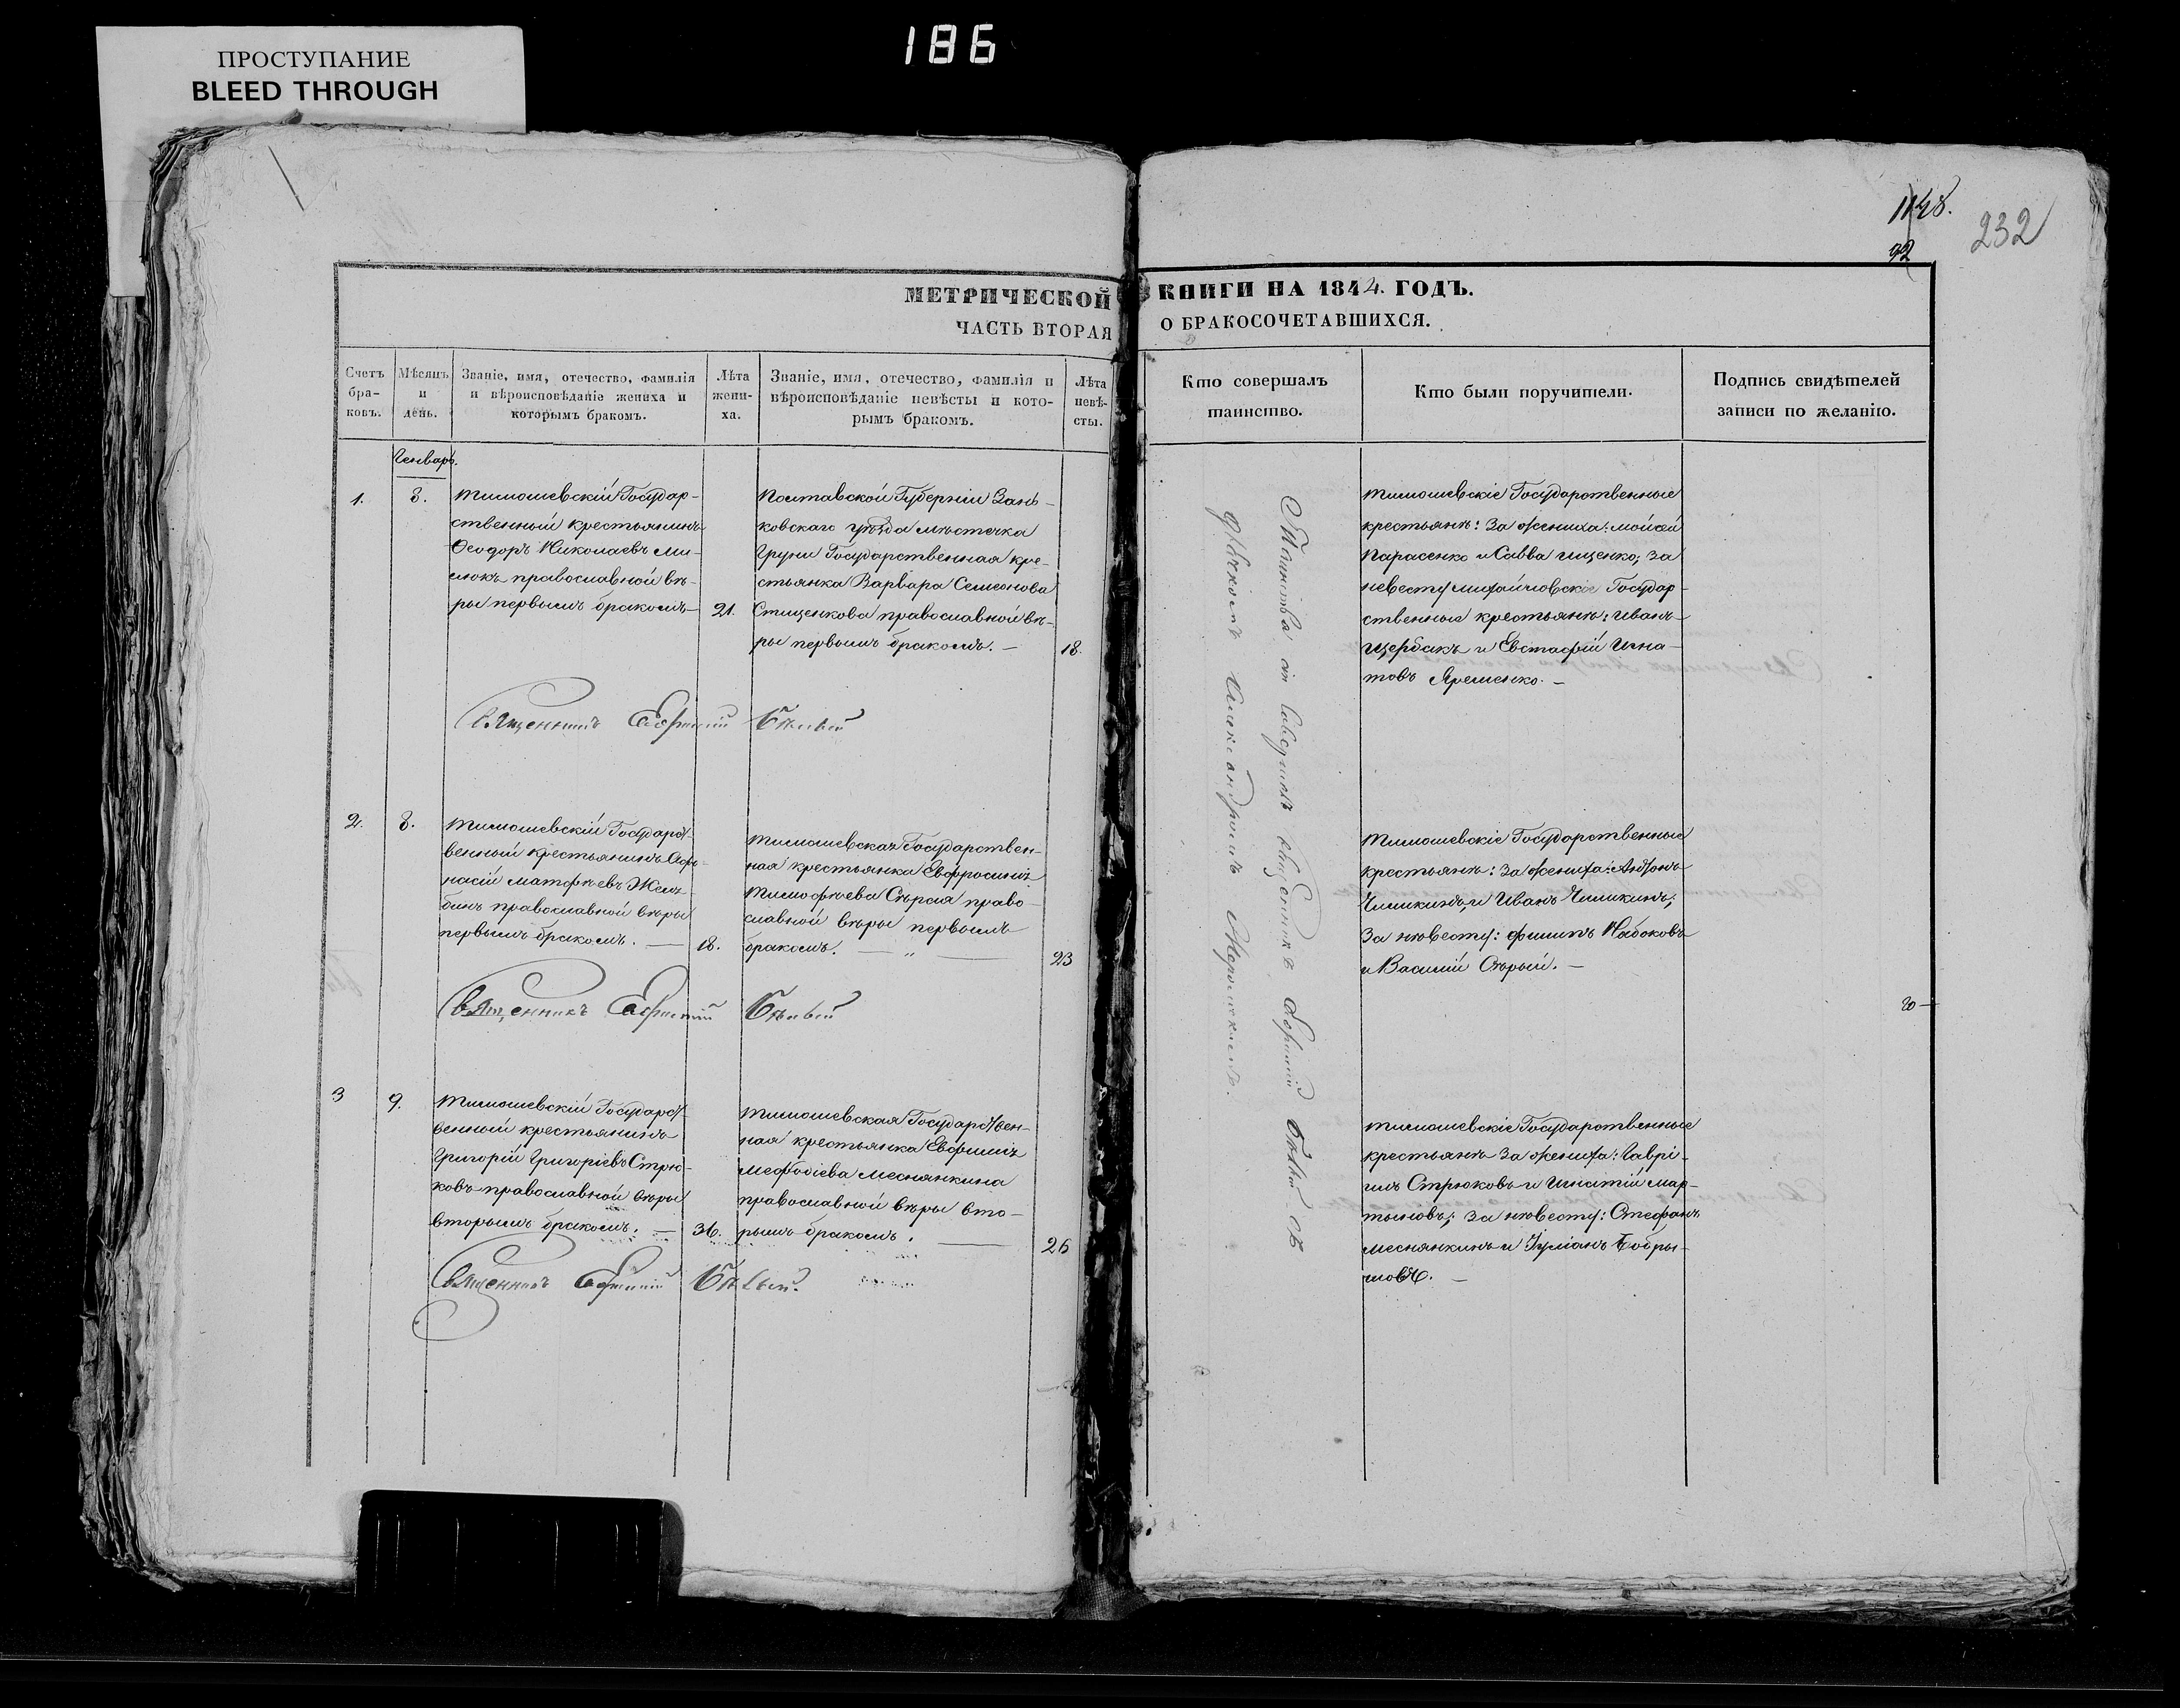 186
ПРОСТУПАНИЕ
BLEED THROUGH
1148.
92
232
МЕТРИЧЕСКОЙ КНИГИ НА 1844. ГОДЪ.
ЧАСТЬ ВТОРАЯ О БРАКОСОЧЕТАВШИХСЯ.
Счетъ
бра-
ковъ.
Мѣсяцъ
и
день.
Званіе, имя, отечество, фамилія
и вѣроисповѣданіе жениха и
которымъ бракомъ.
Лѣта
жени-
ха.
Званіе, имя, отечество, фамилія и
вѣроисповѣданіе невѣсты и кото-
рымъ бракомъ.
Лѣта
невѣ-
сты.
Кто совершалъ
таинство.
Кто были поручители.
Подпись свидѣтелей
записи по желанію.
Генварь.
1.
8.
Тимошевскій Государ-
ственный крестьянинъ
Ѳеодоръ Николаевъ Ми-
православной вѣ-
ры первымъ бракомъ
21.
Полтавской Губерніи Зань-
ковскаго уѣзда мѣстечка
Груни Государственная кре-
стьянка Варвара Семеонова
Стищенкова православной вѣ-
ры первымъ бракомъ. —
18.
Тимошевскіе Государственные
крестьянѣ: За жениха: Моисей
Парасенко и Савва Ищенко; За
невесту Михайловскіе Государ-
ственные крестьянѣ: Иванъ
Щербакъ и Евстафій Игна-
товъ Яременко. —
Священникъ Бѣлый
Таинства сіи совершилъ Священникъ Бѣлый съ
Дьячкомъ Александромъ
2.
8.
Тимошевскій Государст-
венный крестьянинъ Афа-
насій Матфѣевъ Желя-
бинъ православной вѣры
первымъ бракомъ. —
18.
Тимошевская Государствен-
ная крестьянка Евфросинія
Тимофѣева Сѣрая право-
славной вѣры первымъ
бракомъ. — „ —
23
Тимошевскіе Государственные
крестьянѣ: За жениха: Антонъ
Чиликинъ, и Иванъ Чиликинъ;
За нѣвесту: Филипъ Набоковъ
и Василій Сѣрый. —
Священникъ Бѣлый
3
9.
Тимошевскій Государст-
венный крестьянинъ
Григорій Григоріевъ Стрю-
ковъ православной вѣры
вторымъ бракомъ. —
36.
Тимошевская Государствен-
ная крестьянка Евфимія
Мефодіева Меснянкина
православной вѣры вто-
рымъ бракомъ. —
26
Тимошевскіе Государственные
крестьянѣ За жениха: Гаврі-
илъ Стрюковъ и Игнатій Мар-
тыновъ; За нѣвесту: Стефанъ
Меснянкинъ и Іуліанъ Бобры-
шовъ. —
Священникъ Бѣлый.